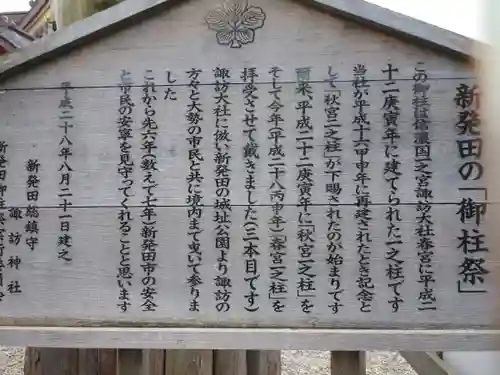 新発田の「御柱祭」
この御柱は信濃国一之宮諏訪大社春宮に平成二
十二庚寅年に建てられた一之柱です
当社が平成十六甲申年に再建されたとき記念と
して「秋宮一之柱」が下賜されたのが始まりです
爾来、平成二十二庚寅年に「秋宮一之柱」を
そして今年(平成二十八丙申年)「春宮一之柱」を
拝受させて戴きました(三本目です)
諏訪大社に倣い新発田の城址公園より諏訪の
方々と大勢の市民と共に境内まで曳いて参りま
した
これから先六年(数えで七年)新発田市の安全
と市民の安寧を見守ってくれることと思います
平成二十八年八月二十一日建之
新発田総鎮守
諏訪神社
新発田御柱祭